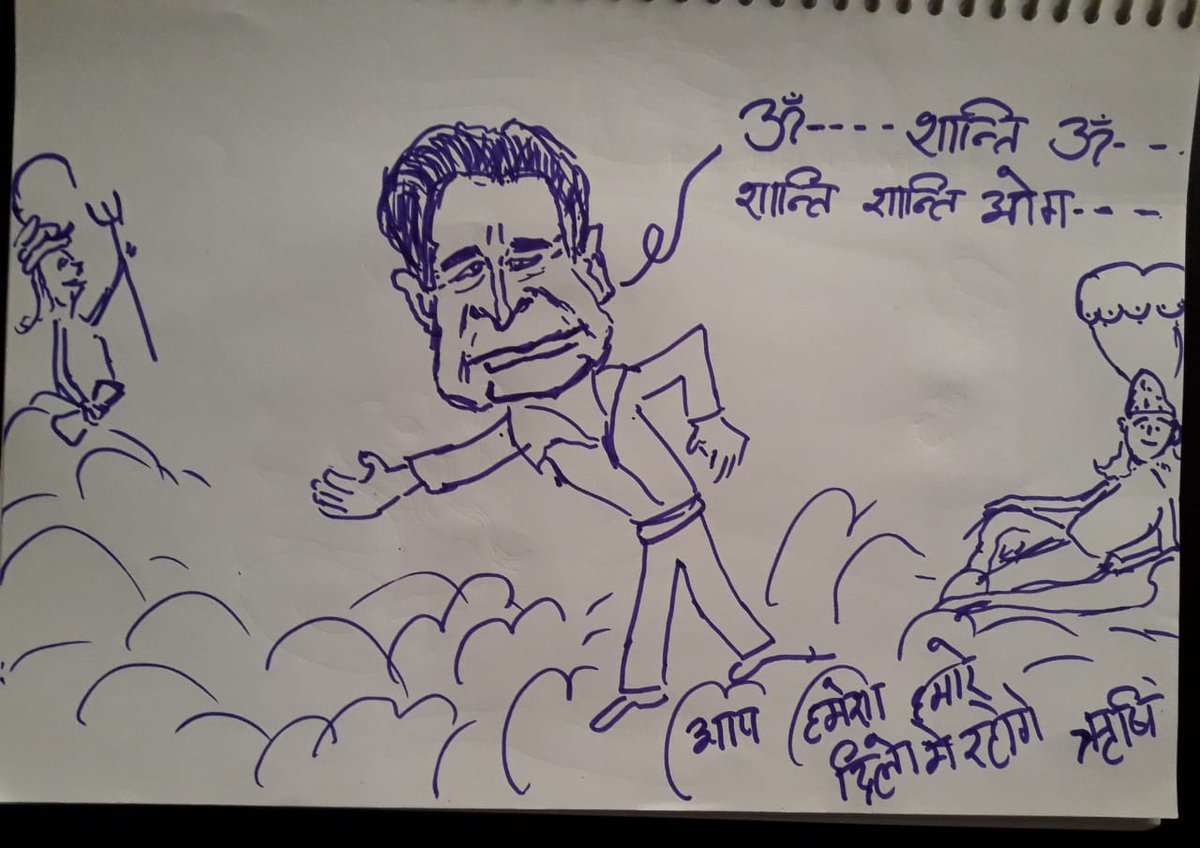 ॐ---- शान्ति ॐ---
शान्ति शान्ति ओम----
आप हमेशा हमारे
दिलो मे रहोगे ऋषि